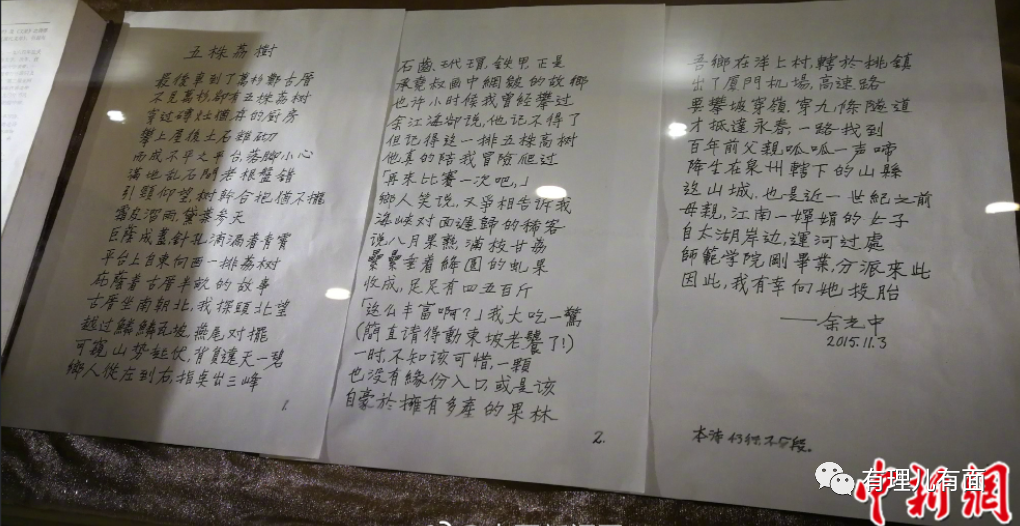 五株荔樹
最後車到了萬杉鄭古厝
不見萬杉,卻有五株荔樹
穿过磚灶僅存的廚房
攀上屋後土石雜砌
而成不平之平台,落脚小心
滿地乱石鬥老根盤錯
引頸仰望,树幹合抱猶不攏
皮溜雨,黛葉參天
巨蔭成蓋,針孔滴漏著青霄
平台上自東向西一排荔树
庇蔭着古厝半畝的故事
古厝坐南朝北,我探頭北望
越过鱗鱗瓦坡,燕尾对擺
可窺山勢起伏,背負遠天一碧
鄉人從左到右,指點出三峰
石齒、玳瑁、鉄甲,正是
承堯叔画中網皴的故鄉
也许小时候我曾經攀过
余江海卻说,他记不得了
但记得这一排五株高树
他真的陪我冒險爬过
「再來比賽一次吧,」
鄉人笑说,又爭相告訴我
海峽对面遲歸的稀客
说八月果熟,滿枝甘荔
纍纍垂着絳圓的虬果
收成,足足有四五百斤
「这么丰富啊?」我大吃一驚
(簡直請得動東坡老饕了!)
一时,不知该可惜,一顆
也没有緣份入口,或是该
自豪於擁有多產的果林
2.
吾鄉在洋上村,轄於桃鎮
出了厦門机場,高速路
要攀坡穿嶺,穿九條隧道
才抵達永春,一路找到
百年前父親,呱呱一声啼
降生在泉州轄下的山縣
这山城,也是近一世紀之前
母親,江南一嬋娟的女子
自太湖岸边,運河过處
師範学院剛畢業,分派來此
因此,我有幸向她投胎
——余光中
2015.11.3
本诗43行,不分段。
有理儿有面
中新網